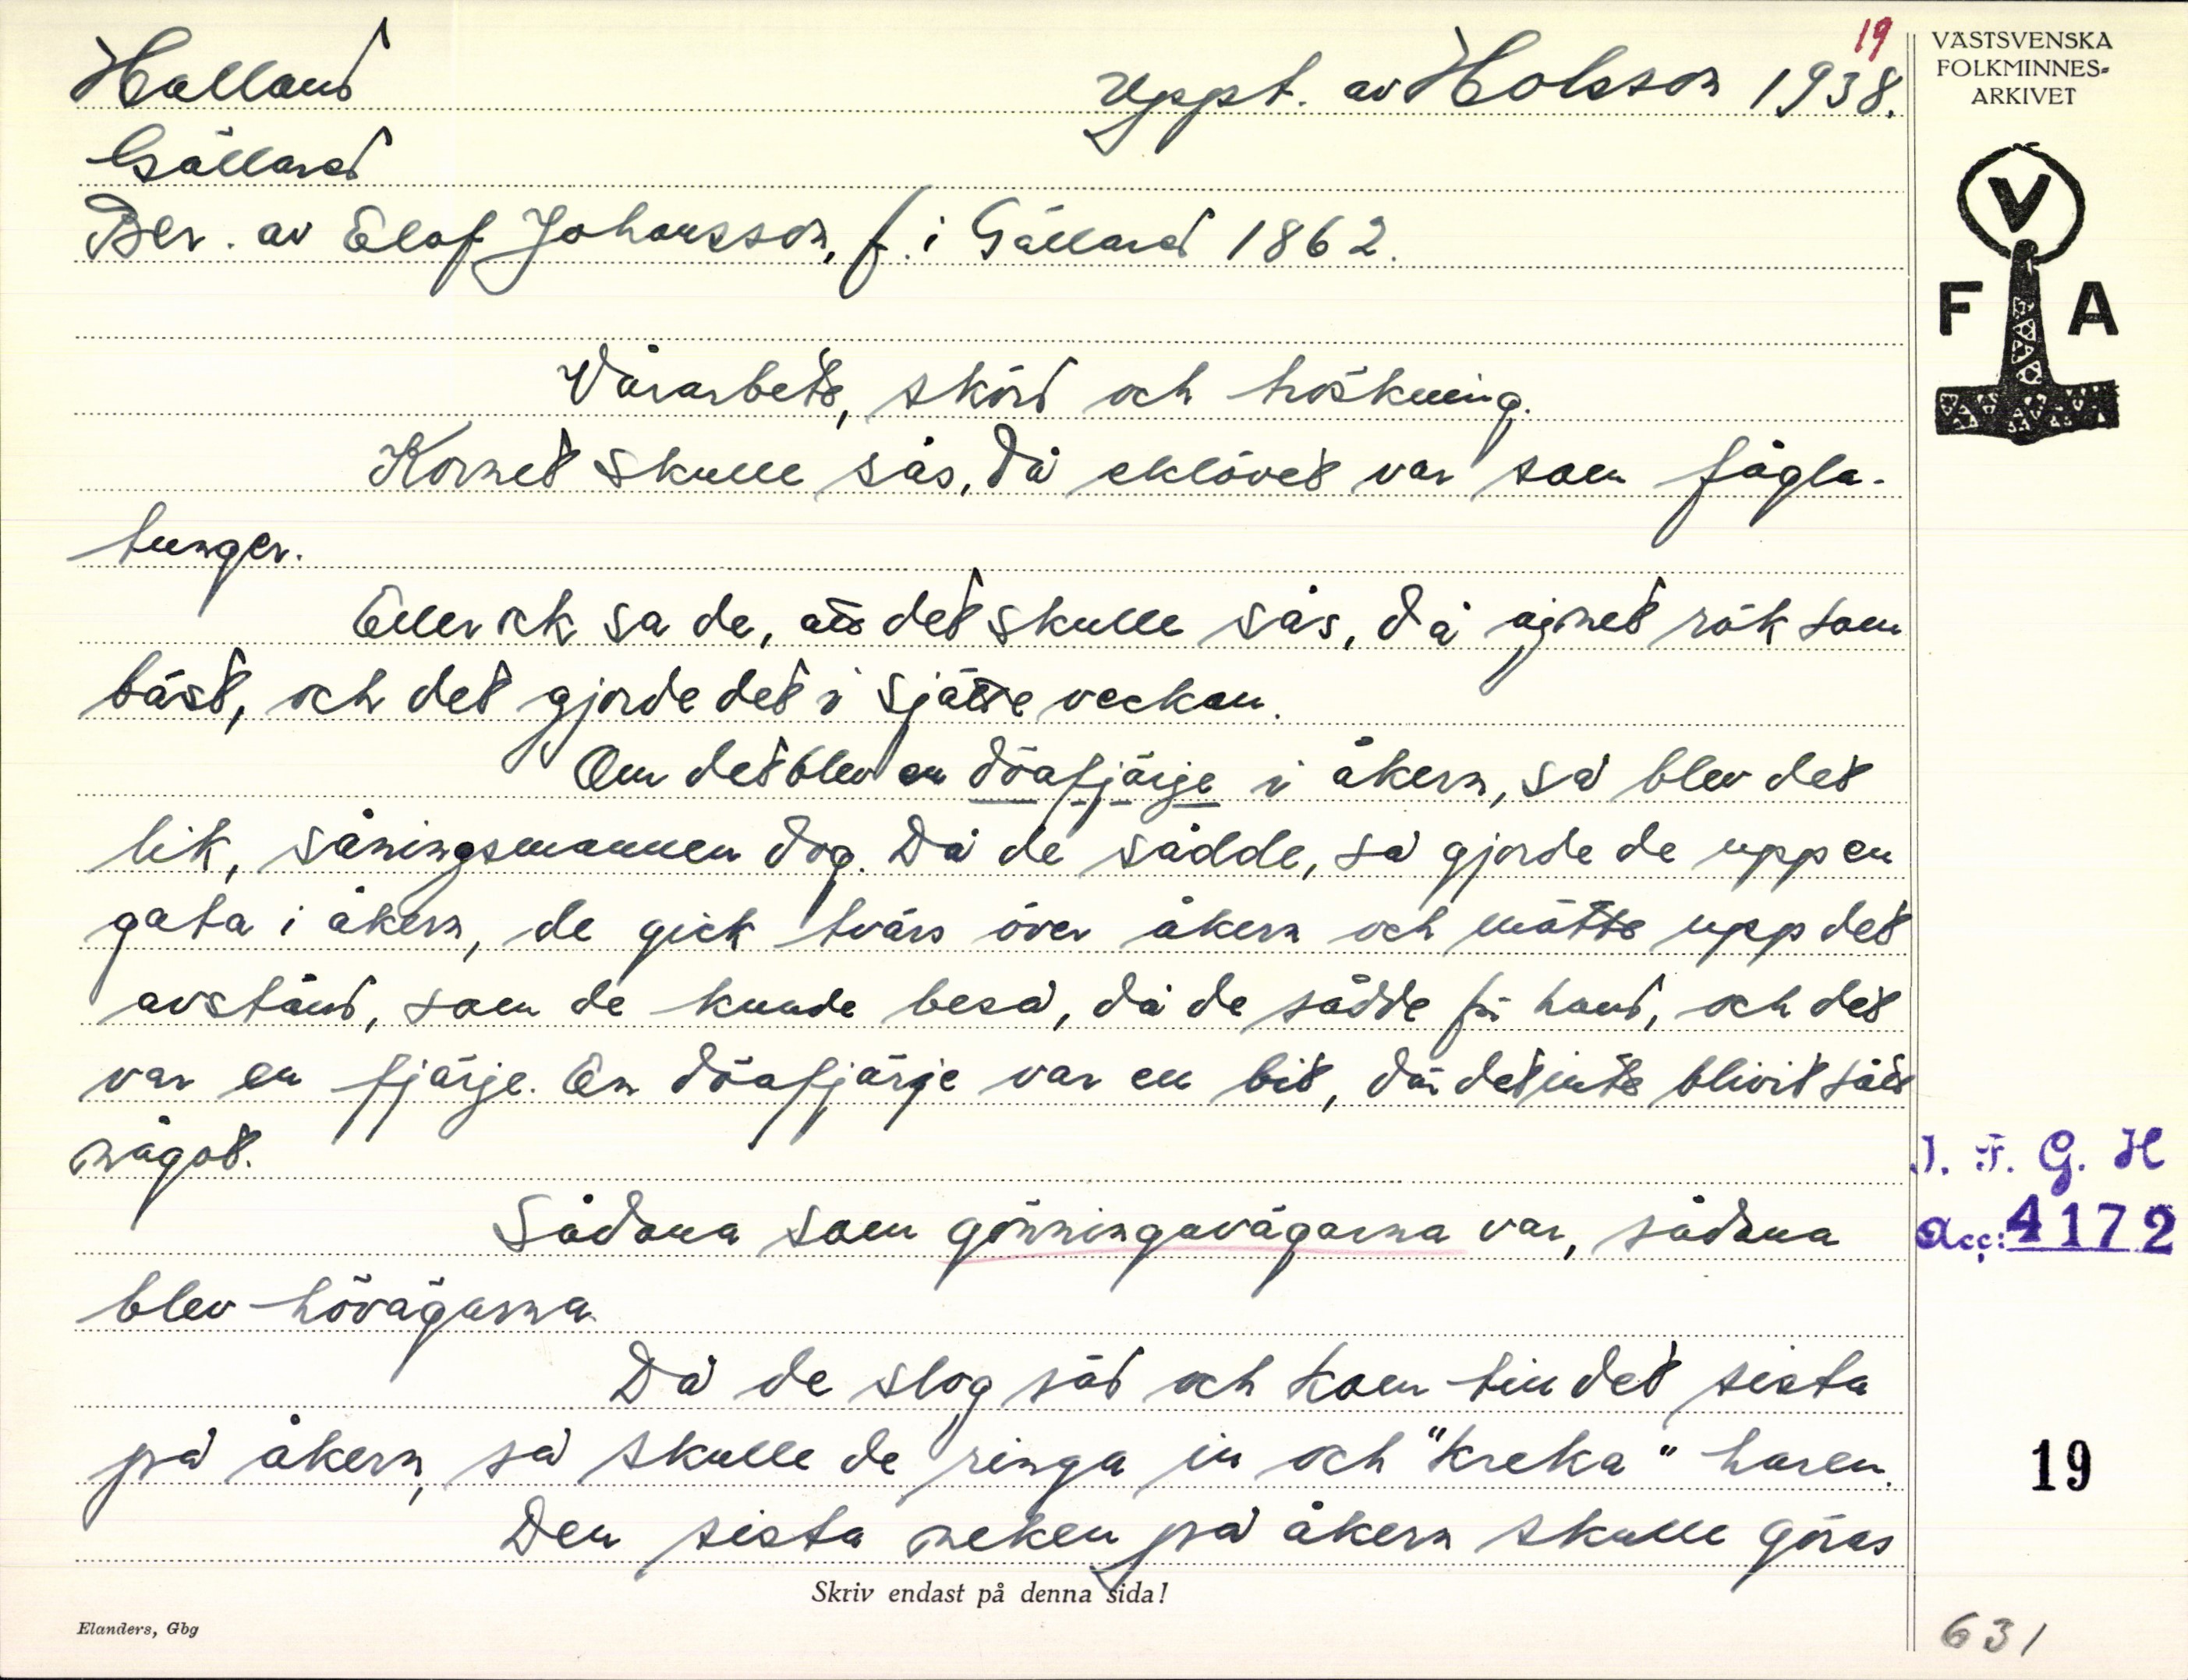 19
Halland
Uppt. av Holsson 1938.
VÄSTSVENSKA
FOLKMINNES-
ARKIVET
V
F A
Gällared
Ber. av Elof Johansson, f. i Gällared 1862.
Vårarbete, skörd och tröskning.
Kornet skulle sås, då eklövet var som fågla-
tunger.
Eller ock sa de, att det skulle sås, då ajnet rök som
bäst, och det gjorde det i sjätte veckan.
Om det blev en döafjärje i åkern, så blev det
lik, såningsmannen dog. Då de sådde, så gjorde de upp en
gata i åkern, de gick tvärs över åkern och mätte upp det
avstånd, som de kunde beså, då de sådde för hand, och det
var en fjärje. En döafjärje var en bit, där det inte blivit sått
något.
Sådana som gönningavägarna var, sådana
blev hövägarna.
Då de slog säd och kom till det sista
på åkern, så skulle de ringa in och "kreka" haren.
Den sista neken på åkern skulle göras
I. F. G. H
Acc: 4172
19
Skriv endast på denna sida!
Elanders, Gbg
631